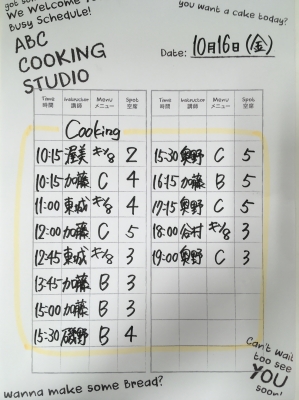 got so
We Welcome Yo
Busy Schedule!
you want a cake today?
ABC
COOKING
STUDIO
Date: 10月16日(金)
Time 時間 Instructor 講師 Menu メニュー Spot 空席
Time 時間 Instructor 講師 Menu メニュー Spot 空席
Cooking
10:15 渥美 キッズ 2
10:15 加藤 C 4
11:00 東城 キッズ 4
12:00 加藤 C 5
12:45 東城 キッズ 3
13:45 加藤 B 3
15:00 加藤 B 3
15:30 磯野 B 4
15:30 奥野 C 5
16:15 加藤 B 5
17:15 奥野 C 5
18:00 谷村 キッズ 3
19:00 奥野 C 3
Can't wait
too see
YOU
soon!
Wanna make some Bread?